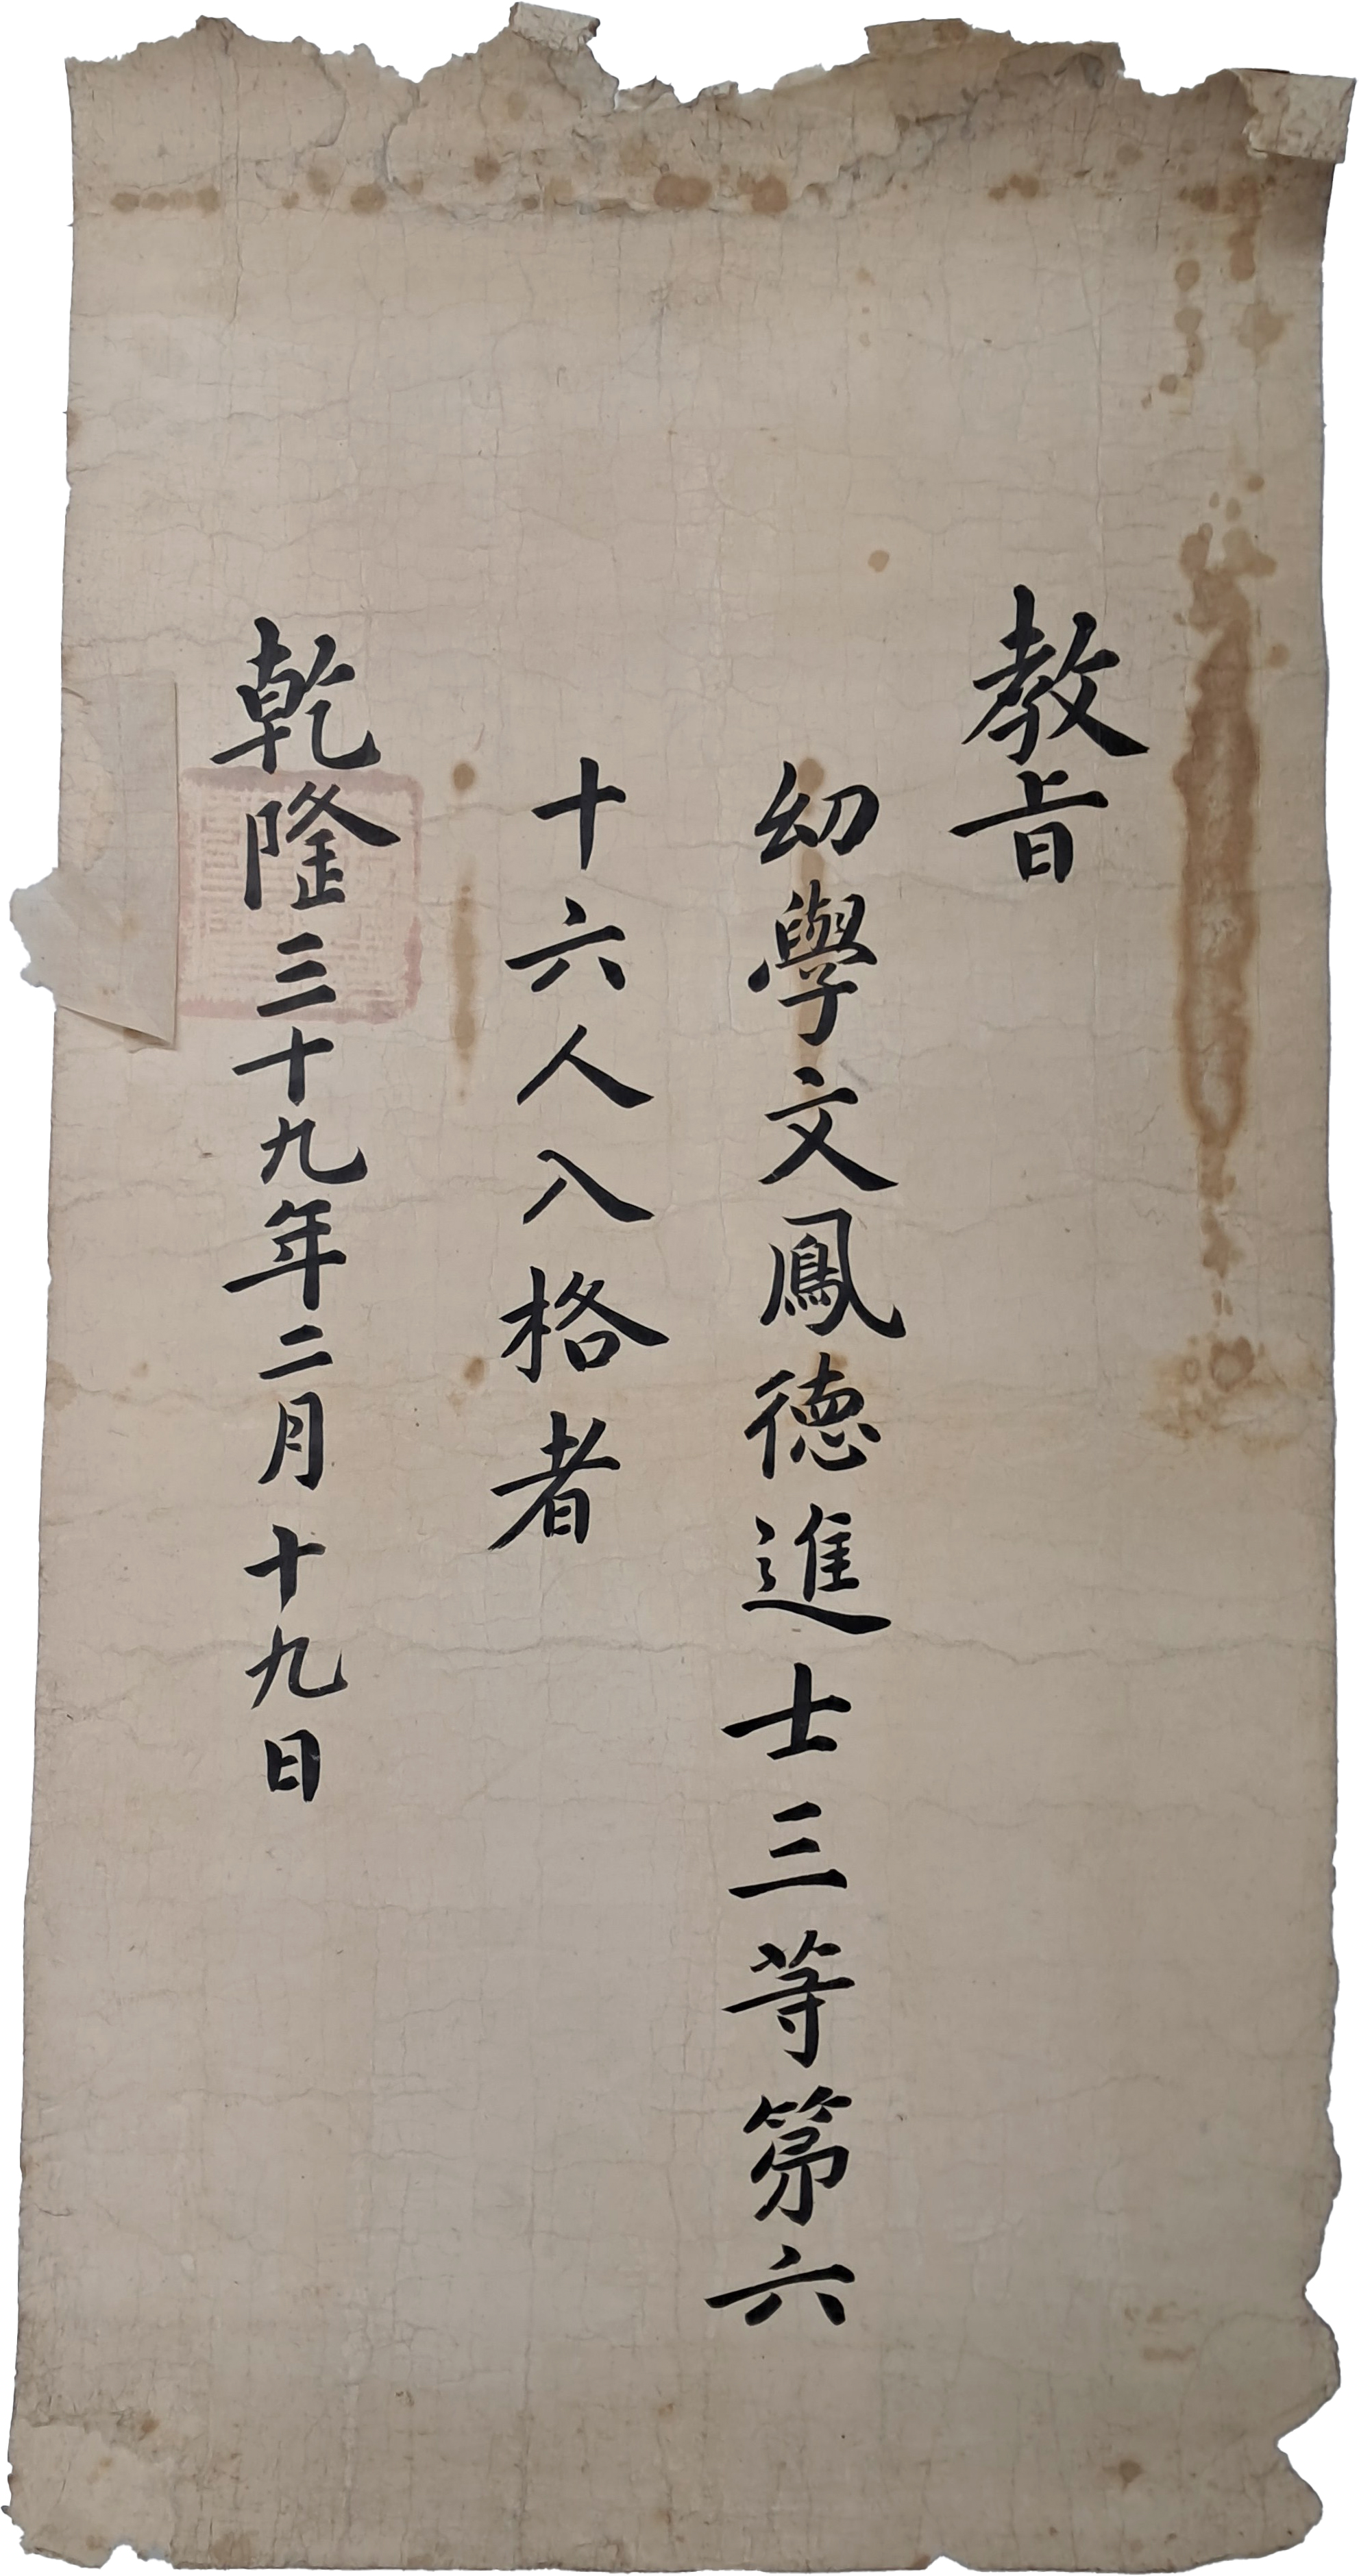 教旨
幼學文鳳德進士三等第六
十六人入格者
乾隆三十九年二月十九日